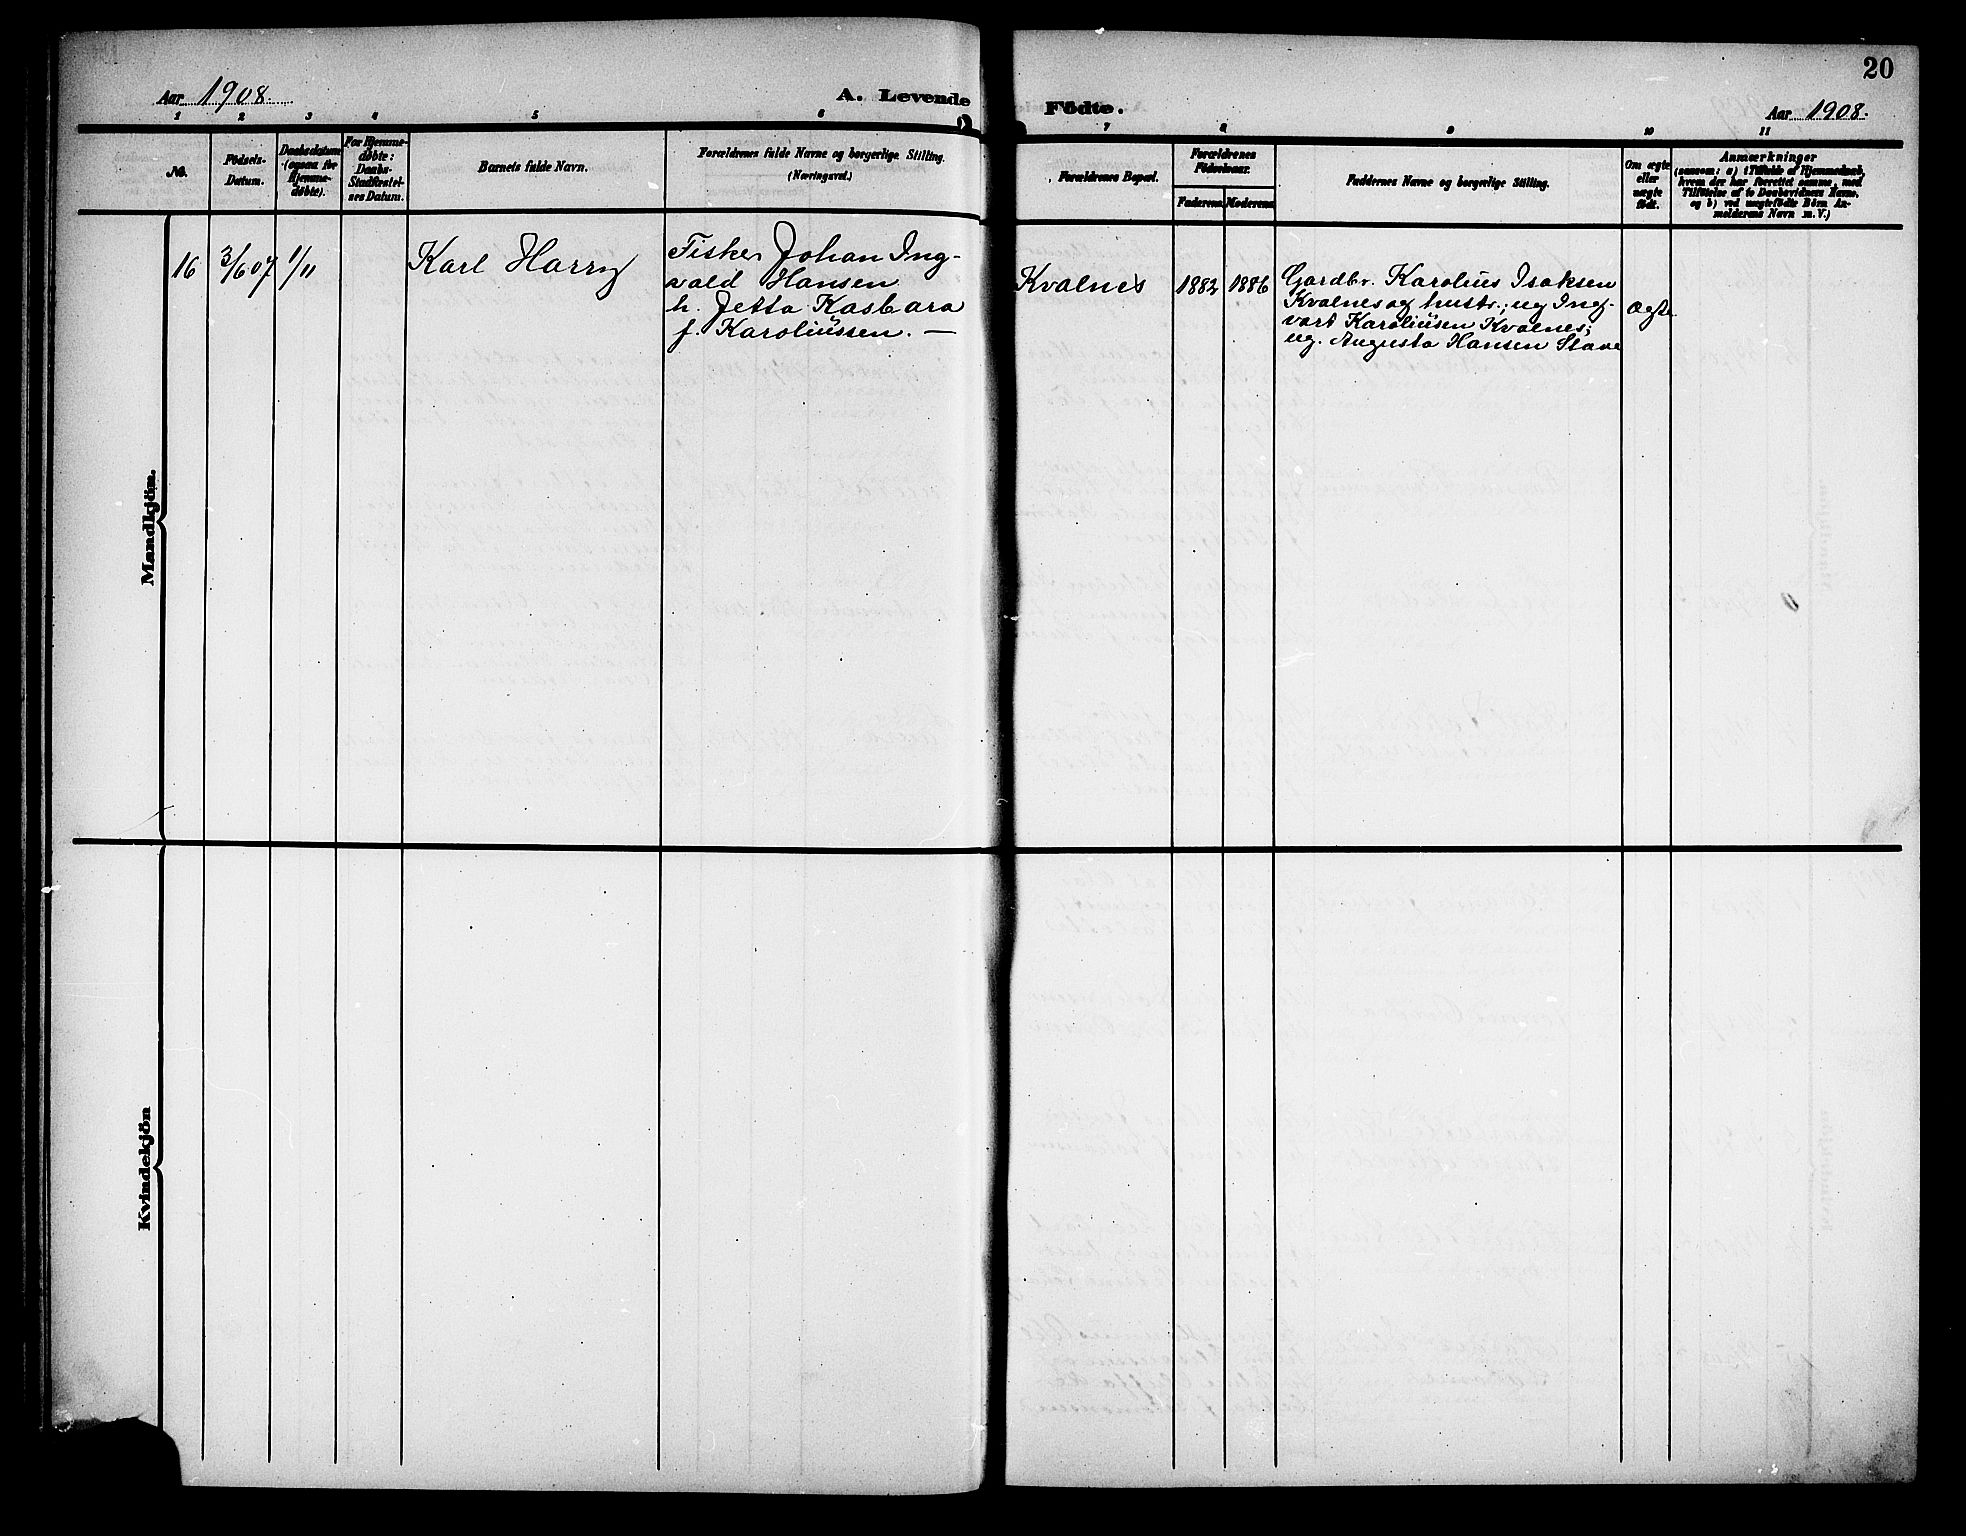 20
Aar 1908.
A. Levende Födte.
Aar 1908.
1 2 3 4 5 6 7 8 9 10 11
No.
Födsels-
Datum.
Daabsdatum
(ogsaa for
Hjemme-
döbte).
For Hjemme-
döbte:
Daabs-
Stadfæstel-
ses Datum.
Barnets fulde Navn.
Forældrenes fulde Navne og borgerlige Stilling.
(Næringsvei.)
Forældrenes Bopæl.
Forældrenes
Födselsaar.
Faderens.
Moderens.
Faddernes Navne og borgerlige Stilling.
Om ægte
eller
uægte
födt.
Anmærkninger
(saasom: a) i Tilfælde af Hjemmedaab,
hvem der har forrettet samme, med
Tilföielse af to Daabsvidners Navne.
og b) ved uægtefödte Börn An-
melderens Navn m. V.)
Mandkjön.
16
3/6 07
1/11
Karl Harry
Fisker Johan Ing-
vald Hansen
h. Jetta Kasbara
f. Karoliussen. —
Kvalnes
1882
1886
Gardbr. Karolius Isaksen
Kvalnes og hustr.; ug Ing-
vart Karoliusen Kvalnes;
ug. Augusta Hansen Stave
Ægte
Kvindekjön